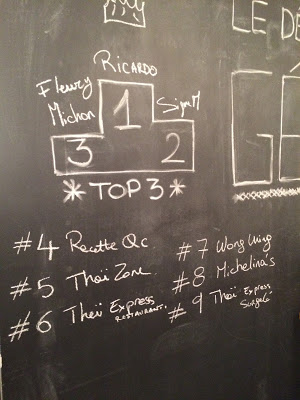 LE DE
RICARDO
Fleury
Michon
Signé M
1
3
2
* TOP 3 *
#4 Recette Qc.
#5 Thaï Zone
#6 Thaï Express
RESTAURANT.
#7 Wong Wing
#8 Michelina's
#9 Thaï Express
Surgelé